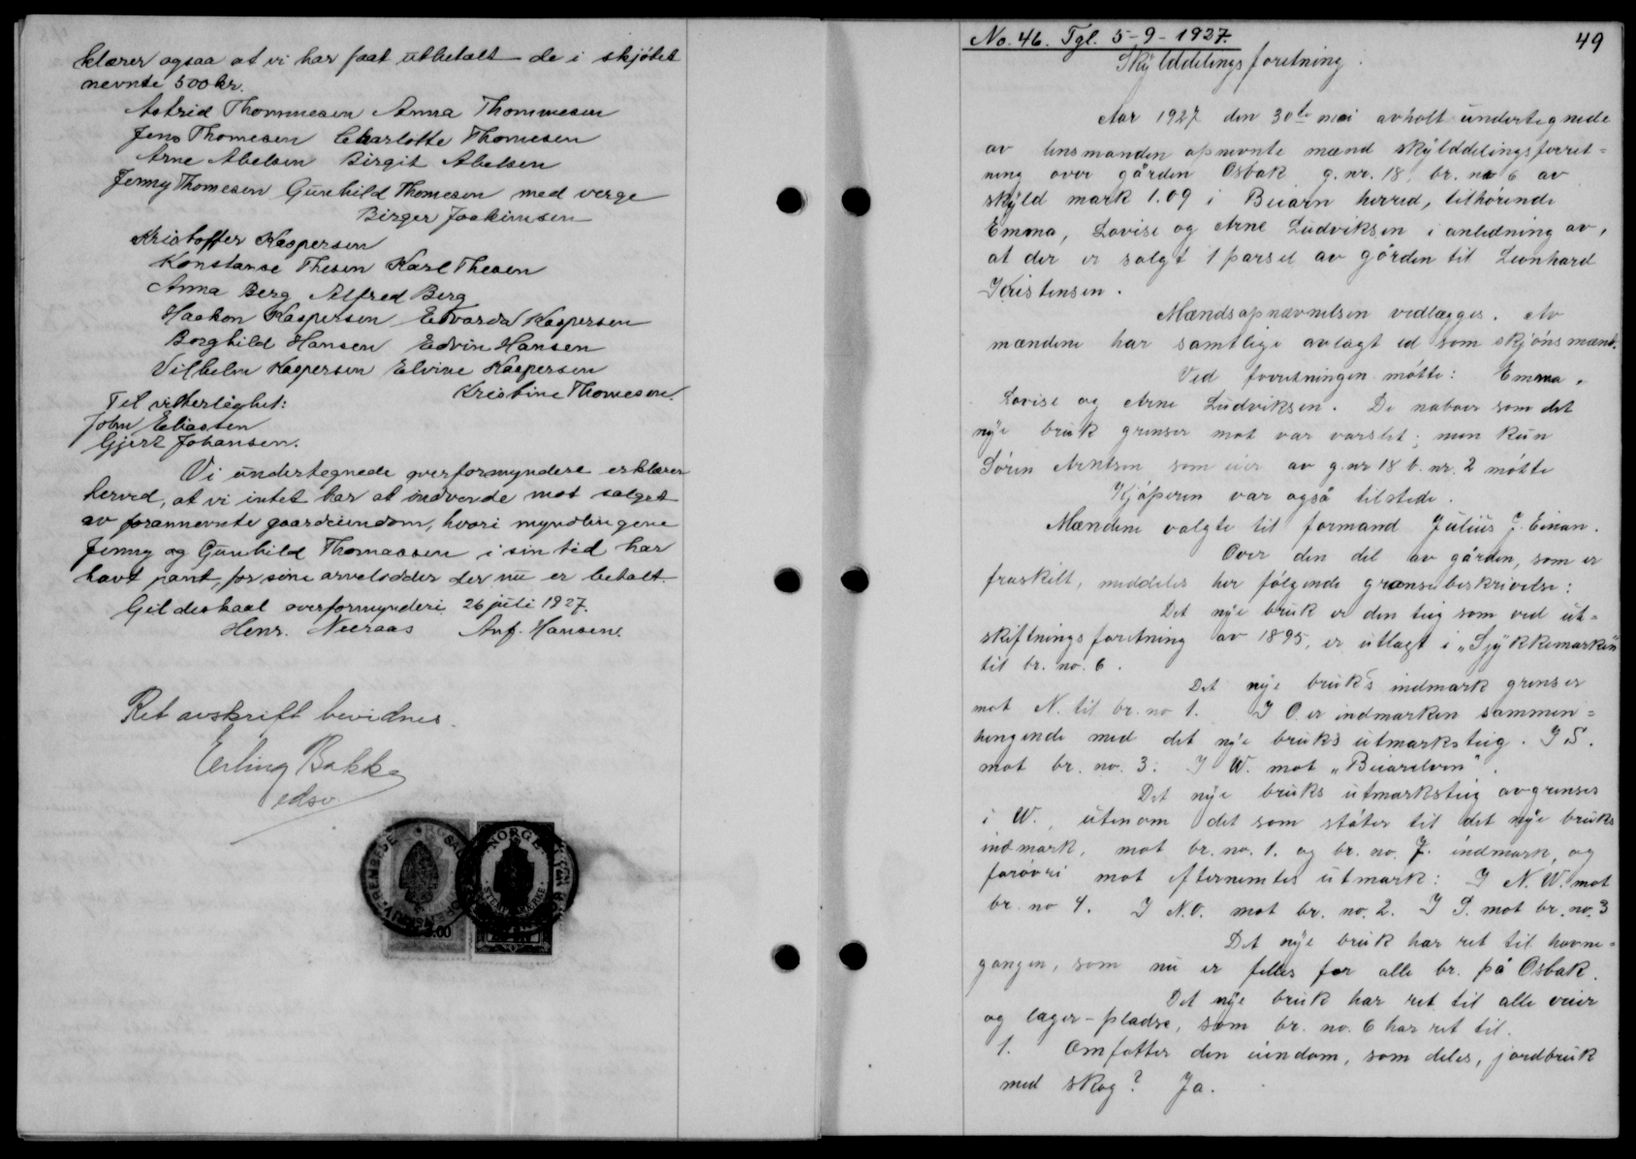 klærer ogsaa at vi har faat utbetalt de i skjötet
nevnte 500 kr.
Astrid Thommesen Anna Thommesen
Jens Thomesen Charlotte Thomesen
Arne Abelsen Birgit Abelsen
Jenny Thomesen Gunhild Thomesen med verge
Birger Joakimsen
Kristoffer Kaspersen
Konstanse Thesen Karl Thesen
Anna Berg Alfred Berg
Haakon Kaspersen Edvarda Kaspersen
Borghild Hansen Edvin Hansen
Vilhelm Kaspersen Elvine Kaspersen
Kristine Thomesen.
Til vitterlighet:
John Eliassen
Gjert Johansen.
Vi undertegnede overformyndere erklærer
herved, at vi intet har at indvende mot salget
av forannevnte gaardeiendom, hvori myndlingene
Jenny og Gunhild Thomassen i sin tid har
havt pant, for sine arvelodder der nu er betalt.
Gildeskaal overformynderi 26 juli 1927.
Henr. Neeraas Anf. Hansen.
Ret avskrift bevidnes.
Erling Bakke
edsv.
NORGE
STEMPELMERKE
No. 46. Tgl. 5-9-1927.
49
Skylddelingsforetning.
Aar 1927 den 30te mai avholt undertegnede
av lensmanden opnevnte mænd skylddelingsforret-
ning over gården Osbak g.nr. 18, br. nr 6 av
skyld mark 1.09 i Beiarn herred, tilhörende
Emma, Lovise og Arne Ludviksen i anledning av,
at der er solgt 1 parsel av gården til Leonhard
Kristensen.
Mændsopnævnelsen vedlægges. Av
mændene har samtlige avlagt ed som skjönsmænd.
Ved forretningen mötte: Emma,
Lovise og Arne Ludviksen. De naboer som det
nye bruk grenser mot var varslet; men kun
Sören Arntsen som eier av g.nr 18 b.nr. 2 mötte
Kjöperen var også tilstede.
Mændene valgte til formand Julius J. Einan.
Over den del av gården, som er
fraskilt, meddeles her fölgende grænsebeskrivelse:
Det nye bruk er den teig som ved ut-
skiftningsforetning av 1895, er utlagt i "Sjykkemarken"
til br. no. 6.
Det nye bruks indmark grenser
mot N. til br. no 1. I O. er indmarken sammen-
hengende med det nye bruks utmarksteig. I S.
mot br. no. 3. I W. mot "Beiarelven".
Det nye bruks utmarksteig avgrenses
i W., utenom det som stöter til det nye bruks
indmark, mot br. no. 1. og br. no. 7. indmark, og
forövri mot efternemtes utmark: I N.W. mot
br. no 4. I N.O. mot br. no. 2. I S. mot br. no. 3
Det nye bruk har ret til havne-
gangen, som nu er felles for alle br. på Osbak.
Det nye bruk har ret til alle veier
og lager-pladse, som br. no. 6 har ret til.
1. Omfatter den eiendom, som deles, jordbruk
med skog? Ja.